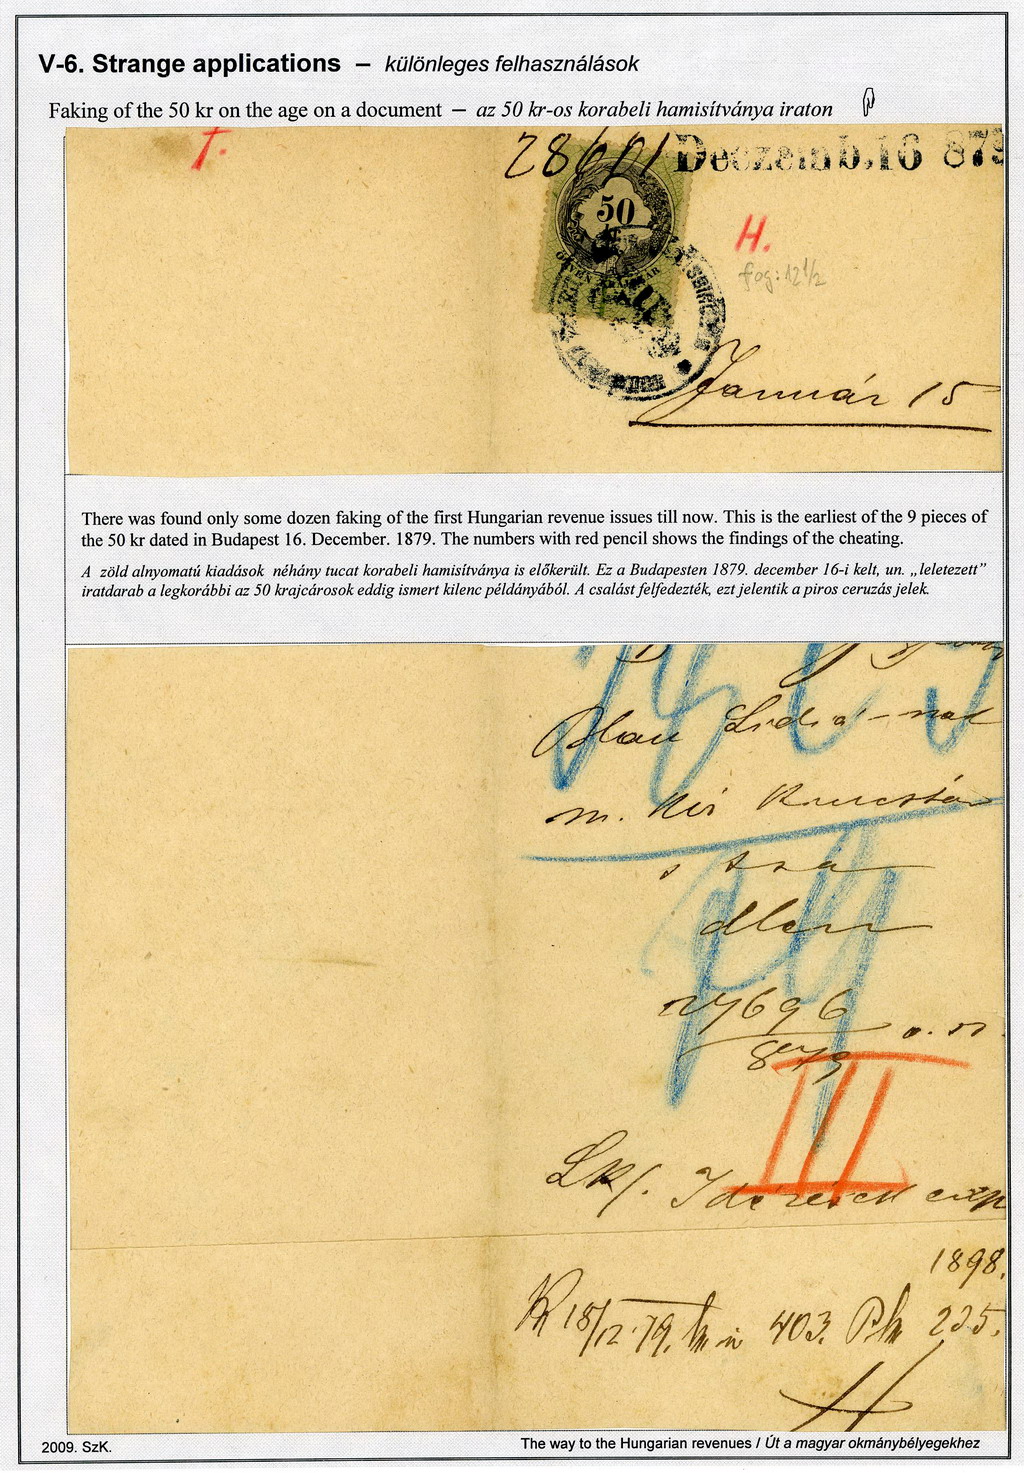 V-6. Strange applications – különleges felhasználások
Faking of the 50 kr on the age on a document – az 50 kr-os korabeli hamisítványa iraton
T.
28601 Deczemb.16 879
50
kr
ÖTVEN KRAJCZÁR
H.
fog: 12 1/2
Január 15
There was found only some dozen faking of the first Hungarian revenue issues till now. This is the earliest of the 9 pieces of
the 50 kr dated in Budapest 16. December. 1879. The numbers with red pencil shows the findings of the cheating.
A zöld alnyomatú kiadások néhány tucat korabeli hamisítványa is előkerült. Ez a Budapesten 1879. december 16-i kelt, un. „leletezett”
iratdarab a legkorábbi az 50 krajcárosok eddig ismert kilenc példányából. A csalást felfedezték, ezt jelentik a piros ceruzás jelek.
Blau Lidia-nak
m. kir
27696
879
III
1898.
18/12 79. 403. 225.
2009. SzK.
The way to the Hungarian revenues / Út a magyar okmánybélyegekhez